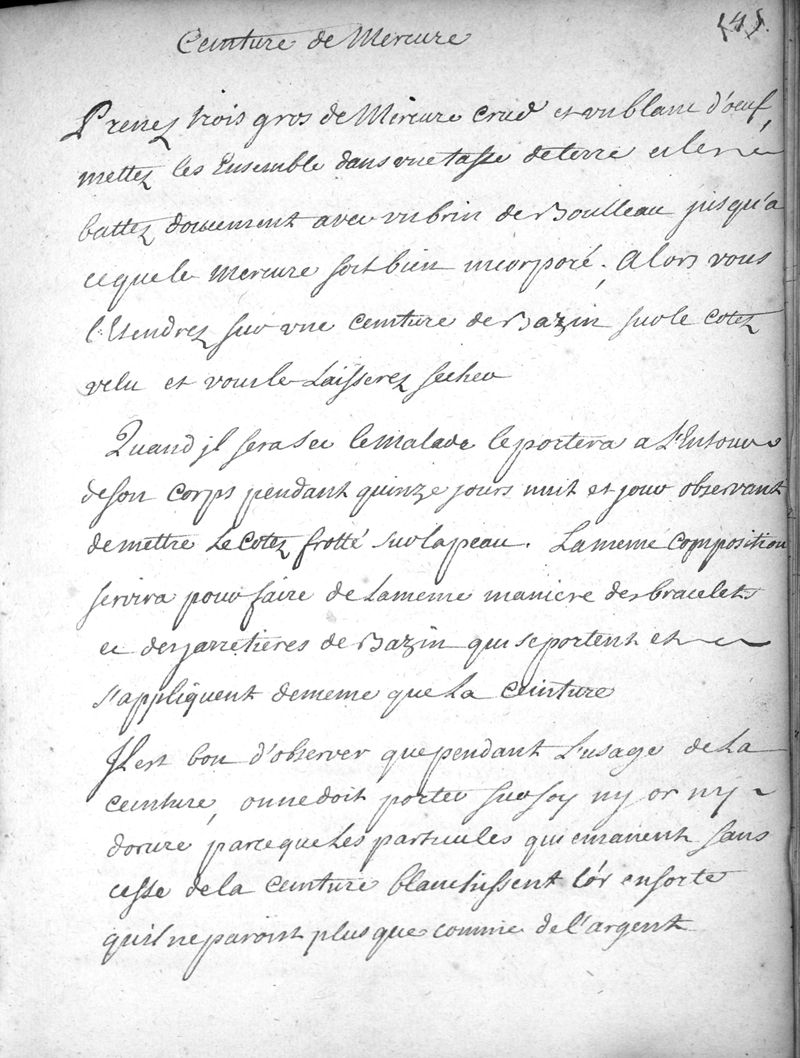 (4).
Ceinture de Mercure
Prenez trois gros de Mercure crud et un blanc d'oeuf,
mettez les Ensemble dans une tasse de terre et les
battez doucement avec un brin de Boulleau jusqu'a
ceque le Mercure soit bien incorporé. Alors vous
l'Etendrez sur une ceinture de Bazin sur le cotez
velu et vous le Laisserez secher
Quand jl sera sec le Malade le portera a L'Entour
de son corps pendant quinze jours nuit et jour observant
de mettre Le Cotez frotté sur la peau. La meme composition
servira pour faire de La meme maniere des bracelets
et des jarretieres de Bazin qui se portent et
s'appliquent de meme que La ceinture
Jl est bon d'observer que pendant L'usage de La
ceinture, on ne doit porter sur soy ny or ny
dorure parceque Les particules qui emanent sans
cesse de la ceinture blanchissent l'or ensorte
qu'il ne paroist plus que comme de l'argent